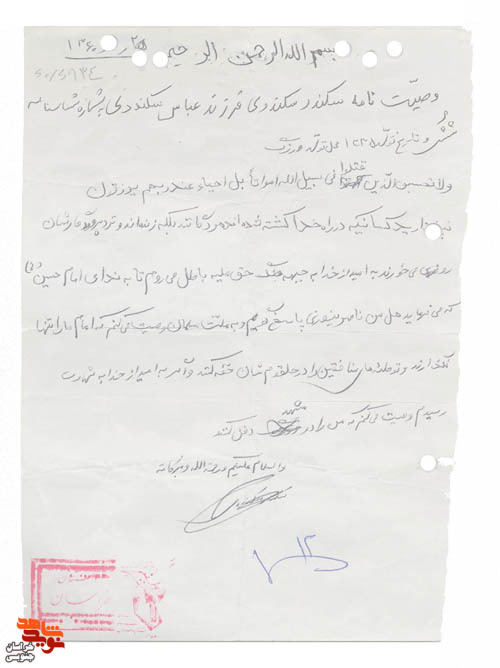 بسم الله الرحمن الرحیم
وصیت نامه سکندر سکندری فرزند عباس سکندری بشماره شناسنامه
شش و تاریخ تولد محل تولد
ولا تحسبن الذین قتلوا فی سبیل الله امواتا بل احیاء عند ربهم یرزقون
نپندارید کسانیکه در راه خدا کشته شده اند مرده اند بلکه زنده اند و نزد پروردگارشان
روزی می خورند به امید از خدا به جبهه جنگ حق علیه باطل می روم تا به ندای امام حسین (ع)
که می فرماید هل من ناصر ینصرنی پاسخ گویم و به ملت مسلمان وصیت می کنم که امام را تنها
نگذارند و توطئه های منافقین را در حلقوم شان خفه کنند و اگر به امید از خدا به شهادت
رسیدم وصیت می کنم که من را در مشهد دفن کنند
والسلام علیکم ورحمة الله وبرکاته
خراسان
شاهد
نوید
خراسان
جنوبی